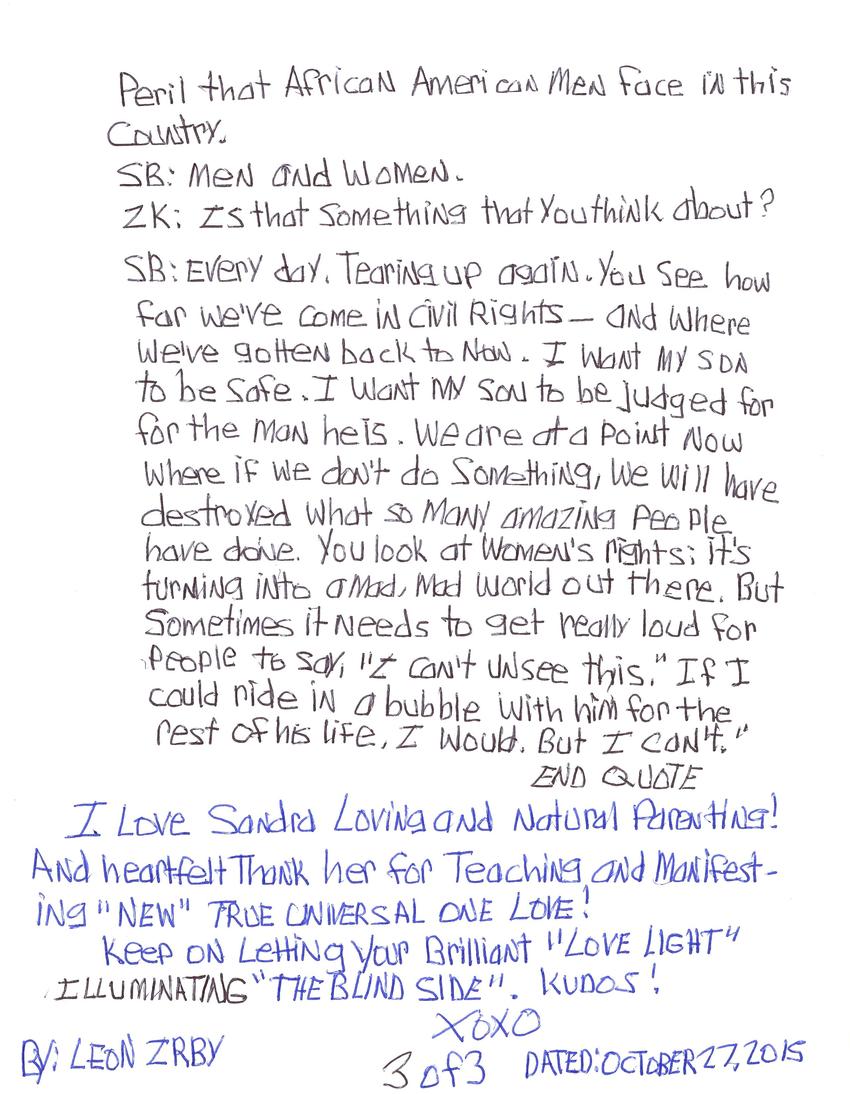 Peril that African American Men face in this
Country.
SB: Men and Women.
ZK: Is that Something that You think about?
SB: Every day. Tearing up again. You See how
far we've come in Civil Rights — and Where
We've gotten back to Now. I Want My Son
to be Safe. I Want My Son to be judged for
for the Man he is. We are at a Point Now
Where if we don't do Something, We Will have
destroyed What so Many amazing People
have done. You look at Women's rights; it's
turning into a Mad, Mad World out there. But
Sometimes it Needs to get really loud for
People to Say, "I can't unsee this." If I
could ride in a bubble With him for the
rest of his life, I Would. But I can't."
END QUOTE
I Love Sandra Loving and Natural Parenting!
And heartfelt Thank her for Teaching and Manifest-
ing "NEW" TRUE UNIVERSAL ONE LOVE!
Keep on Letting Your Brilliant "LOVE LIGHT"
ILLUMINATING "THE BLIND SIDE". KUDOS!
XOXO
By: LEON IRBY
3 of 3
DATED: OCTOBER 27, 2015